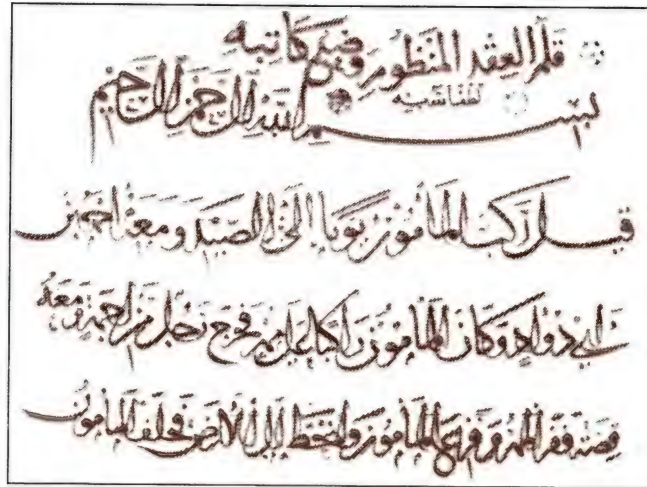 قلم العقد المنظوم وضع كاتبه
بسم الله الرحمن الرحيم
قيل ركب المأمون يوما الى الصيد ومعه احمد بن
ابي دواد وكان المأمون راكبا على مهر فخرج رجل من اجمة ومعه
قصة فنفر المهر وفزع المأمون وانحط الى الارض فحلف المأمون